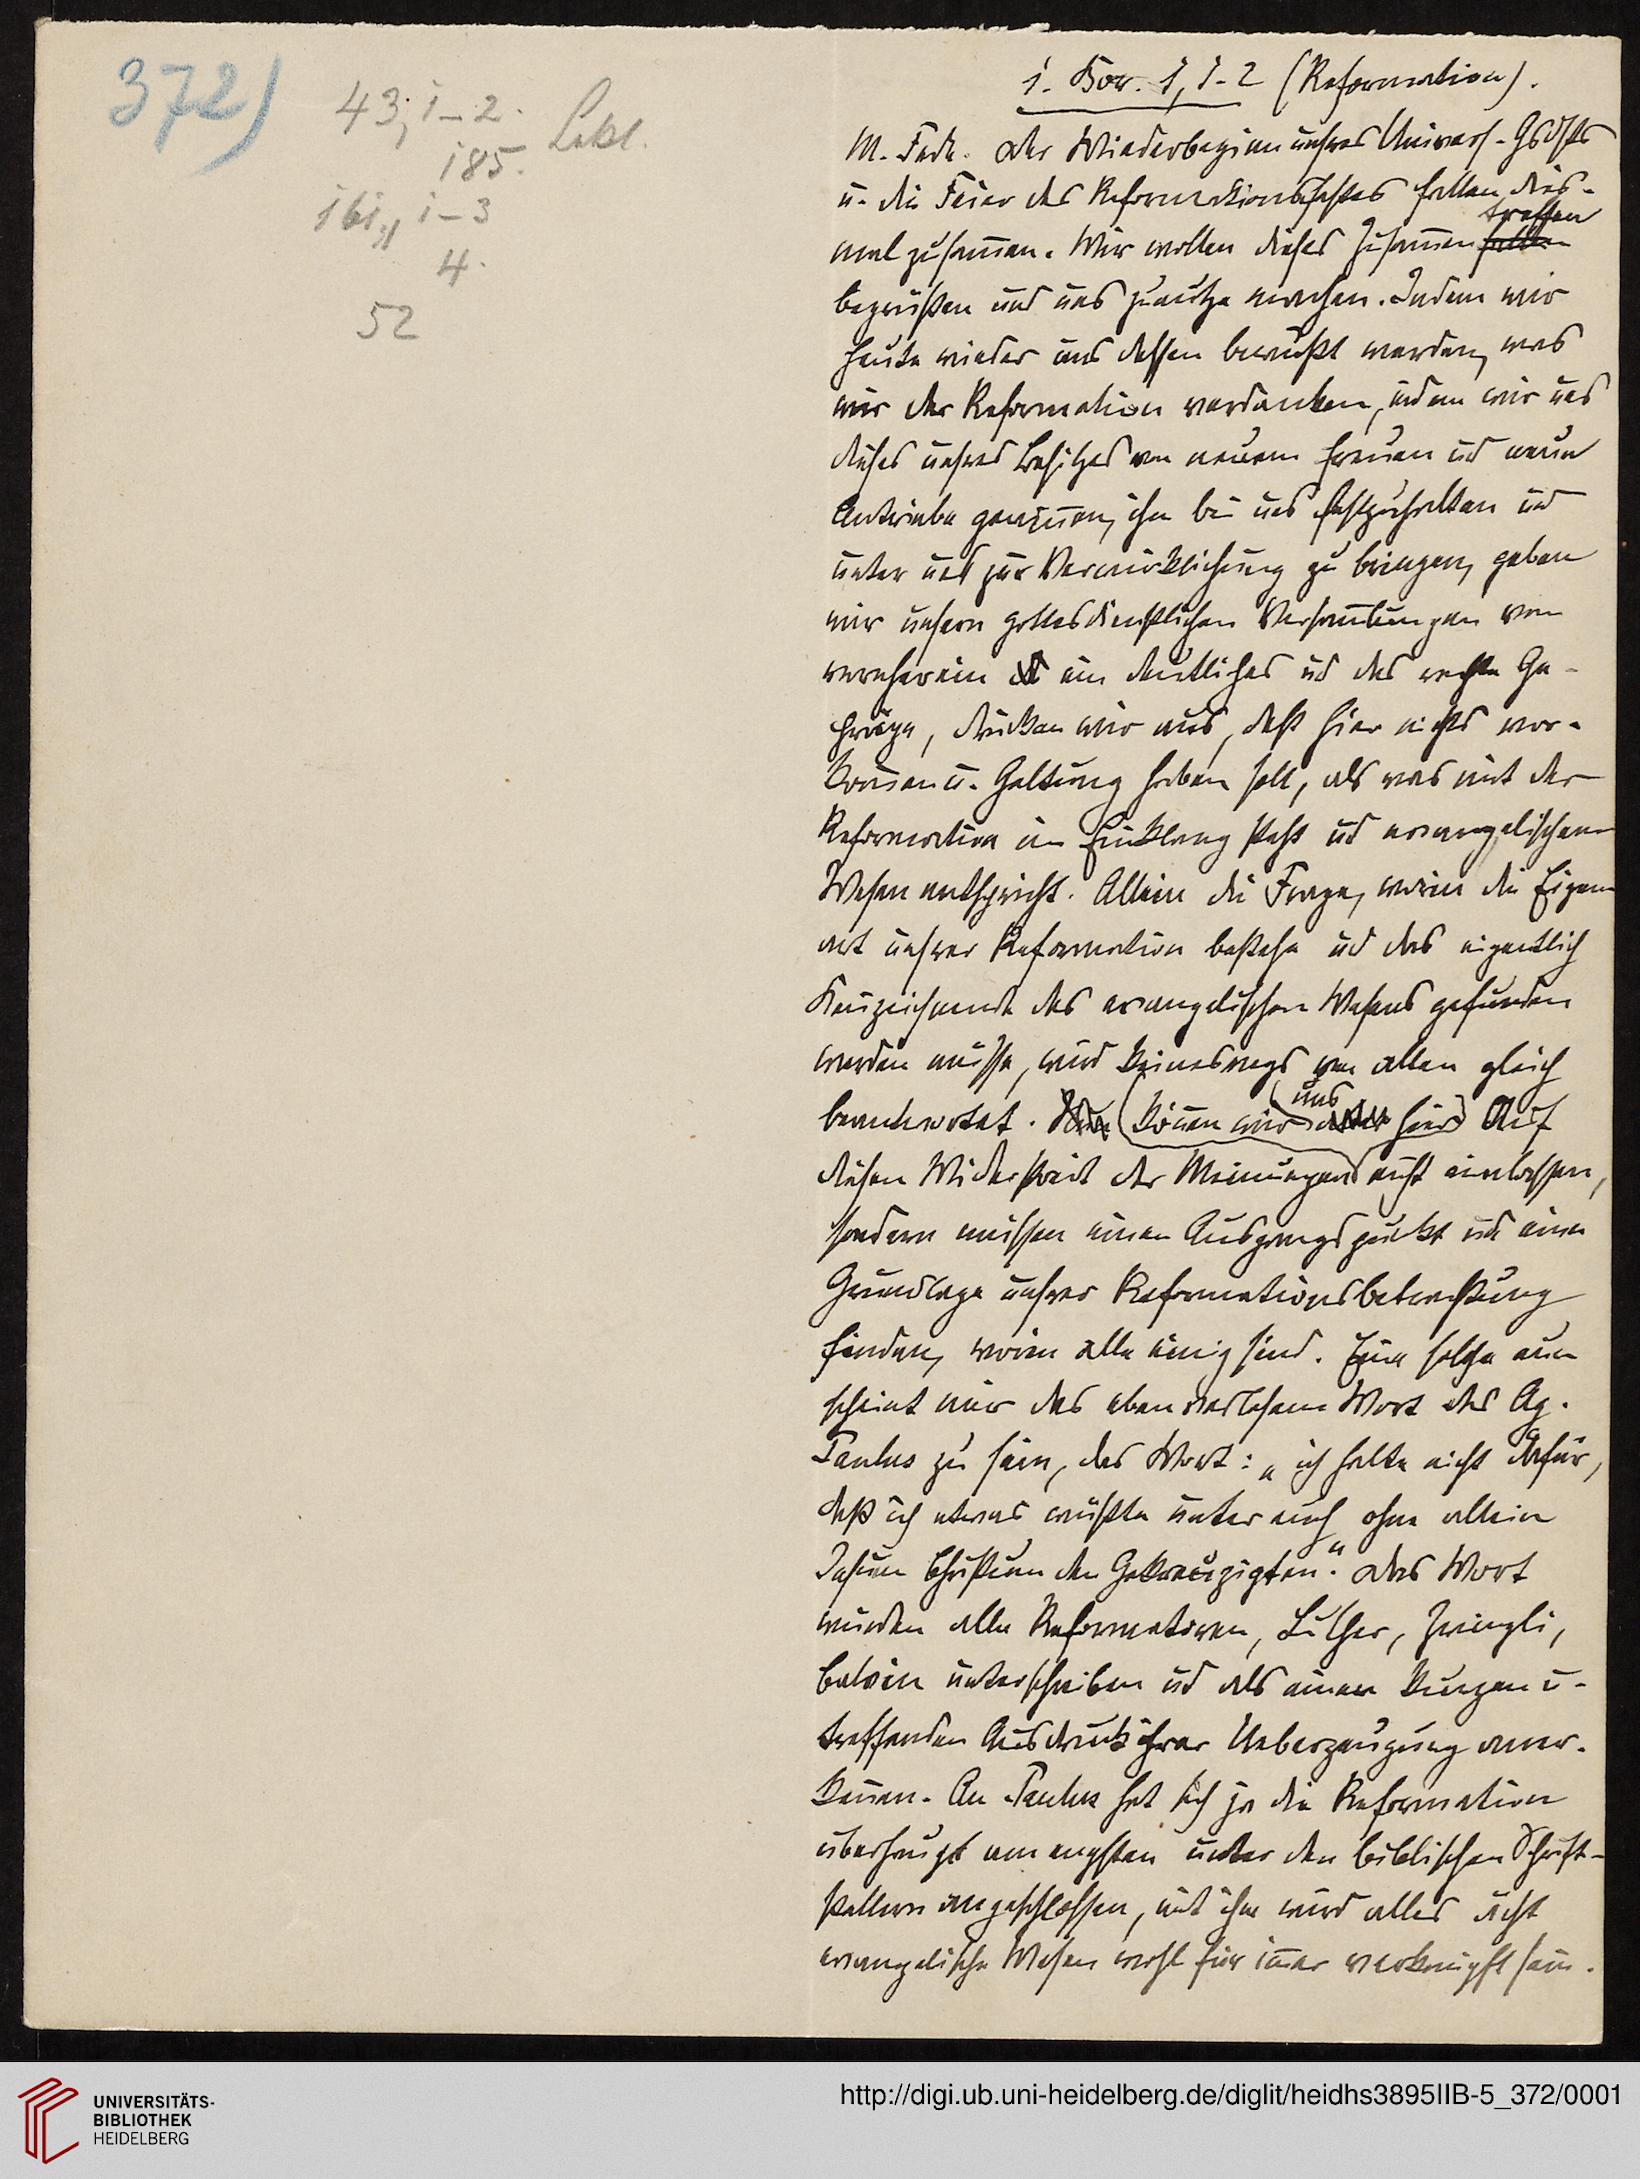 372)
43, 1-2.
185. Lekt.
161, 1-3
4.
52
1. Kor. 1, 1-2 (Reformation).
M. Frde. Der Wiederbeginn unsres Univers.-Gsdsts
u. die Feier des Reformationsfestes fallen dies-
mal zusam̄en. Wir wollen dieses Zusam̄enfallen treffen
begrüßen und uns zunutze machen. Indem wir
heute wieder uns dessen bewußt werden, was
wir der Reformation verdanken, indem wir uns
dieses unsres Besitzes von neuem freuen ud neue
Antriebe gewin̄en, ihn bei uns festzuhalten ud
unter uns zur Verwirklichung zu bringen, geben
wir unsern gottesdienstlichen Versam̄lungen von
vornherein ein deutliches ud das rechte Ge-
präge, drücken wir aus, daß hier nichts vor-
kom̄en u. Geltung haben soll, als was mit der
Reformation im Einklang steht ud evangelischem
Wesen entspricht. Allein die Frage, worin die Eigen
art unsrer Reformation bestehe ud das eigentlich
Ken̄zeichnende des evangelischen Wesens gefunden
werden müsse, wird keineswegs von allen gleich
beantwortet. (kön̄en wir uns hier) Auf
diesen Widerstreit der Meinungen nicht einlassen,
sondern müssen einen Ausgangspunkt ud eine
Grundlage unsrer Reformationsbetrachtung
finden, worin alle einig sind. Eine solche nun
scheint mir das eben verlesene Wort des Ap.
Paulus zu sein, das Wort: „ich halte nicht dafür,
daß ich etwas wüßte unter euch ohne allein
Jesum Christum den Gekreuzigten“. Das Wort
würden alle Reformatoren, Luther, Zwingli,
Calvin unterschreiben ud als einen kurzen u.
treffenden Ausdruck ihrer Ueberzeugung aner-
ken̄en. An Paulus hat sich ja die Reformation
überhaupt am engsten unter den biblischen Schrift-
stellern angeschlossen, mit ihm wird alles ächt
evangelische Wesen wohl für im̄er verknüpft sein.
UNIVERSITÄTS-
BIBLIOTHEK
HEIDELBERG
http://digi.ub.uni-heidelberg.de/diglit/heidhs3895IIB-5_372/0001